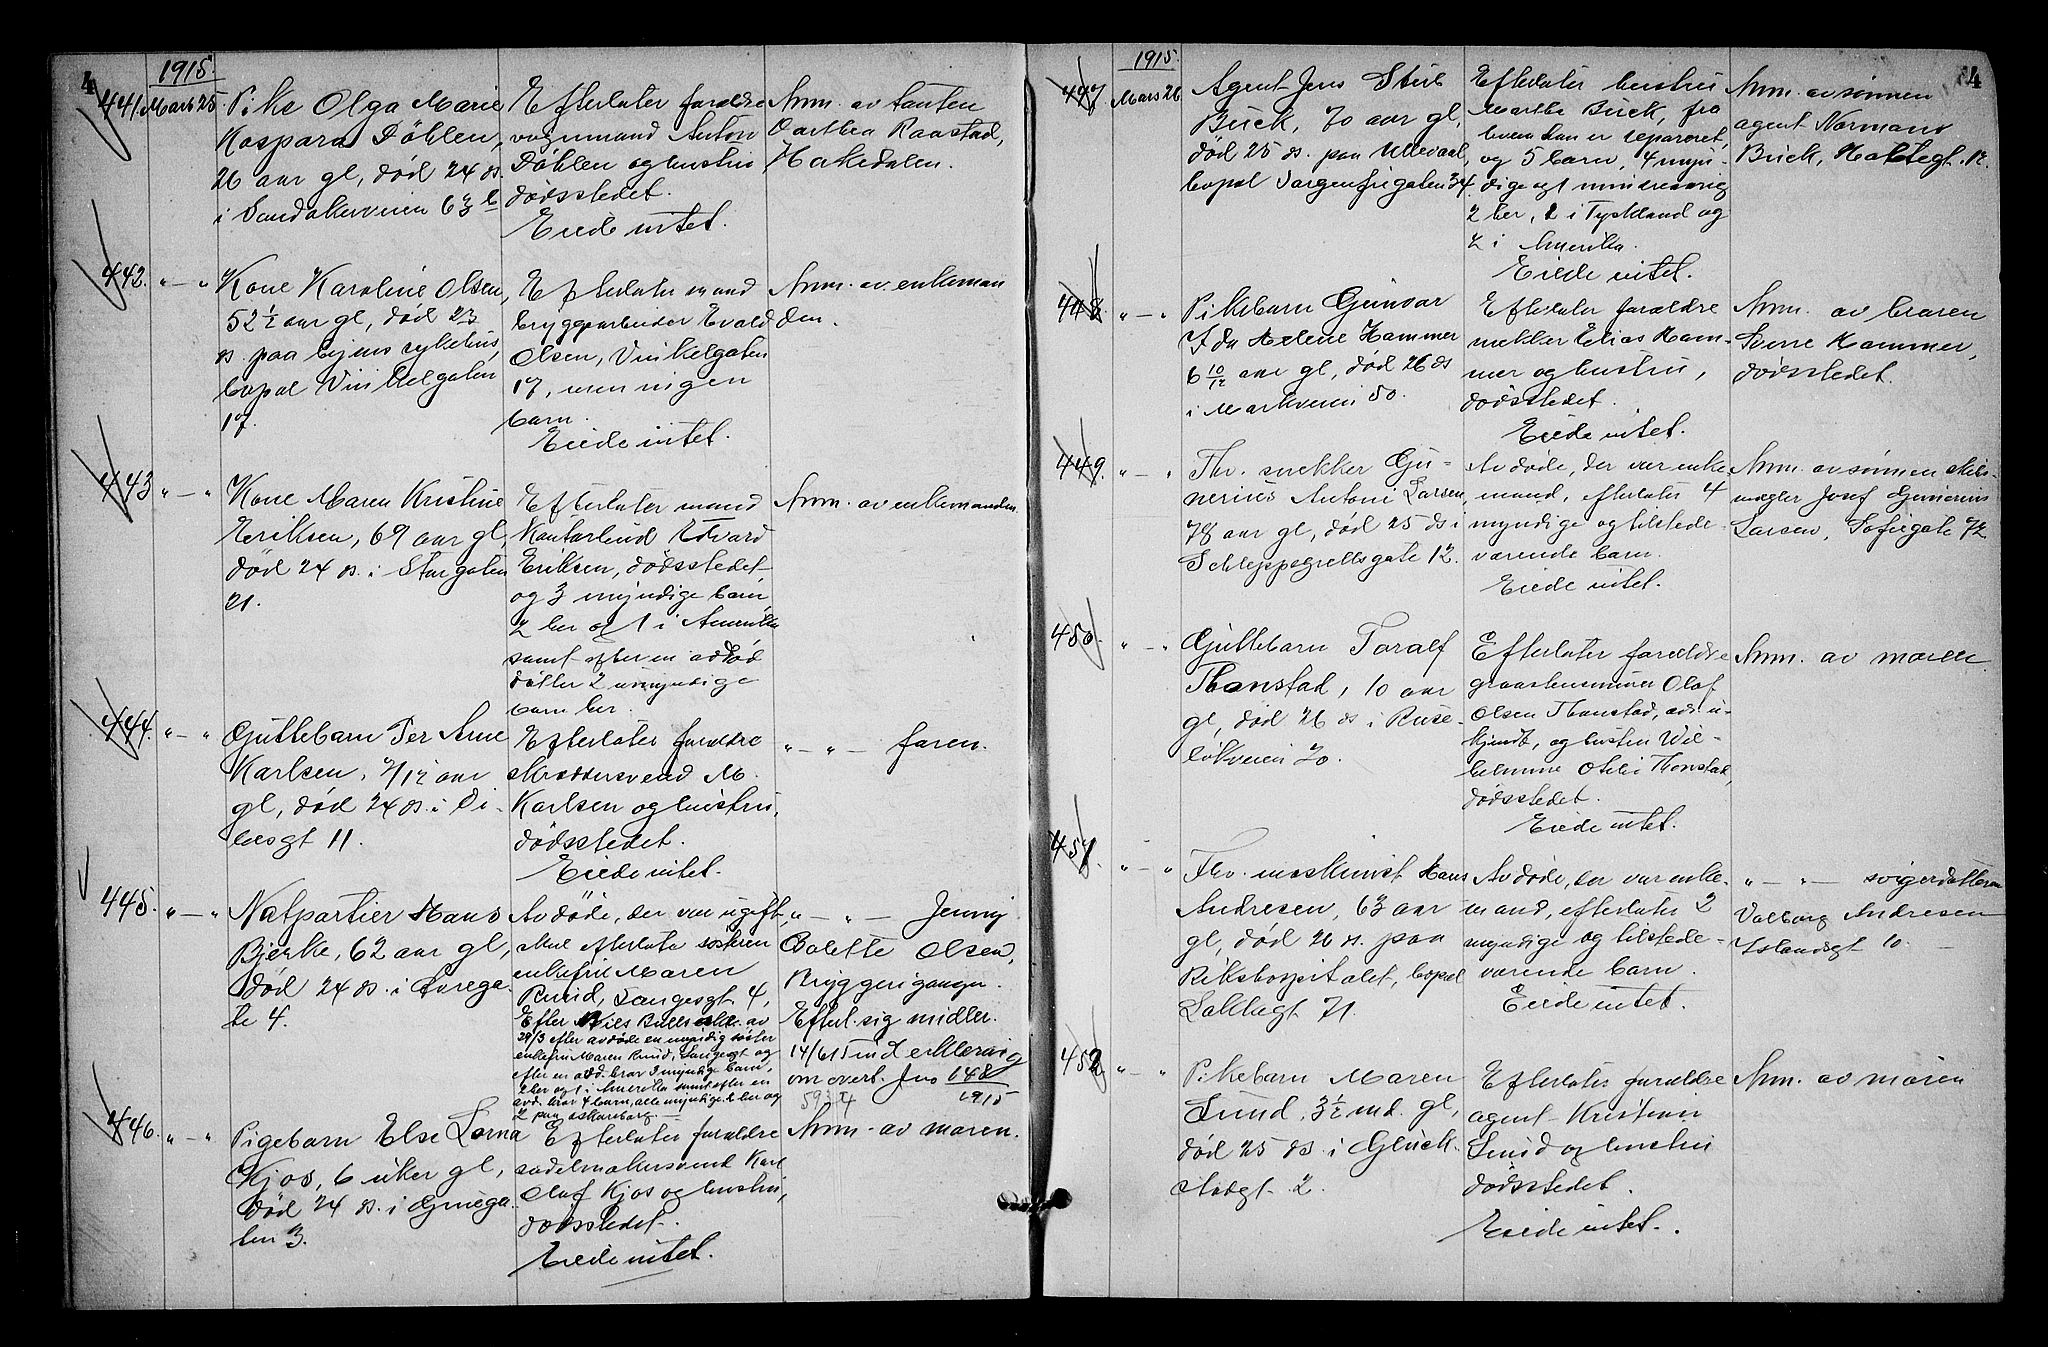 4
1915.
441. Mars 25.
Pike Olga Marie
Kaspara Döhlen,
26 aar gl, död 24 ds.
i Sandakerveien 63 b
Efterlater forældre
Anton
Döhlen og hustru
dödsstedet.
Eiede intet.
Anm. av tanten
Dorthea Raastad,
Hakedalen.
442. " — "
Kone Karoline Olsen,
52 1/2 aar gl, död 23
ds. paa byens sykehus,
bopal Vinkelgaten
17.
Efterlater mand
bryggearbeider Evald
Olsen, Vinkelgaten
17, men ingen
barn.
Eiede intet.
Anm. av enkeman
den.
443 " — "
Kone Maren Kristine
Eriksen, 69 aar gl,
död 24 ds. i Storgaten
21.
Efterlater mand
Kontorbud Edvard
Eriksen, dödsstedet,
og 3 myndige barn
2 her og 1 i Amerika
samt efter en avdöd
datter 2 umyndige
barn her.
Anm. av enkemanden.
444. " — "
Guttebarn Per Arne
Karlsen, 2/12 aar
gl, död 24 ds. i Di-
besgt 11.
Efterlater forældre
skræddersvend M.
Karlsen og hustru,
dödsstedet.
Eiede intet.
" — " — faren.
445. " — "
Natportier Hans
Bjerke, 62 aar gl,
död 24 ds. i
te 4.
Avdöde, der var ugift,
skal efterlate sösteren
enkefru Maren
Ruud, Langesgt 4,
Efter Nils av
29/3 efter avdöde en myndig söster
enkefru Maren Ruud, Langesgt og
efter en avd. bror 3 myndige barn,
2 her og 1 i Amerika samt efter en
avd. bror 4 barn, alle myndige, 2 her og
2 paa
" — " — Jenny
Bolette Olsen,
Bryggerigangen.
Efterl. sig midler.
14/6 15 inderklæring
om overt. Jns 148/1915
446. " — "
Pigebarn Else Lorna
Kjos, 6 uker gl,
död 24 ds. i Grüega-
ten 3.
Efterlater forældre
sadelmakersvend Karl
Olaf Kjos og hustru,
dödsstedet.
Eiede intet.
Anm. av moren.
4
1915.
447 Mars 26
Agent Jens Stub
Buck, 70 aar gl,
död 25 ds. paa Ullevaal,
bopæl Sorgenfrigaten 34.
Efterlater hustru
Marthe Buck, fra
hvem han er separeret,
og 5 barn, 4 myn-
dige og 1 mindreaarig
2 her, 1 i Tyskland og
2 i Amerika.
Eiede intet.
Anm. av sönnen
agent Normann
Buck, Holtegt. 12.
448. " — "
Pikebarn Gunvor
Ida Helene Hammer
6 10/12 aar gl, död 26 ds
i Markveien 50.
Efterlater forældre
snekker Elias Ham-
mer og hustru,
dödsstedet.
Eiede intet.
Anm. av broren
Sverre Hammer,
dödsstedet.
449. " — "
Fhv. snekker Gu-
nerius Antoni Larsen,
78 aar gl, död 25 ds i
Schleppegrellsgate 12.
Avdöde, der var enke
mand, efterlater 4
myndige og tilstede-
værende barn.
Eiede intet.
Anm. av sönnen skibs
mægler Josef Gunerius
Larsen, Sofiegate 72
450. " — "
Guttebarn Toralf
Thonstad, 10 aar
gl, död 26 ds i Ruse-
lökveien 70.
Efterlater forældre
Olaf
Olsen Thonstad, adr. u-
kjendt, og hustru Wil-
helmine Otilie Thonstad,
dödsstedet.
Eiede intet.
Anm. av moren.
451. " — "
Fhv. maskinist Hans
Andresen, 63 aar
gl, död 26 ds. paa
Rikshospitalet, bopæl
Toftesgt 71.
Avdöde, der var enke-
mand, efterlater 2
myndige og tilstede-
værende barn.
Eiede intet.
" — " — svigerdatteren
Valborg Andresen
Islandsgt 10.
452 " — "
Pikebarn Maren
Lund, 3 1/2 md. gl,
död 25 ds. i Glück-
stadgt. 2.
Efterlater forældre
agent Kristian
Lund og hustru
dödsstedet.
Eiede intet.
Anm. av moren